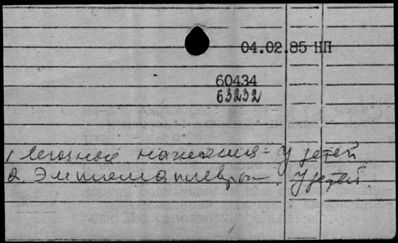 04.02.85 НП
60434
63232
1 Легочное нагноения - у детей
2. Эмпиема плевры - у детей.